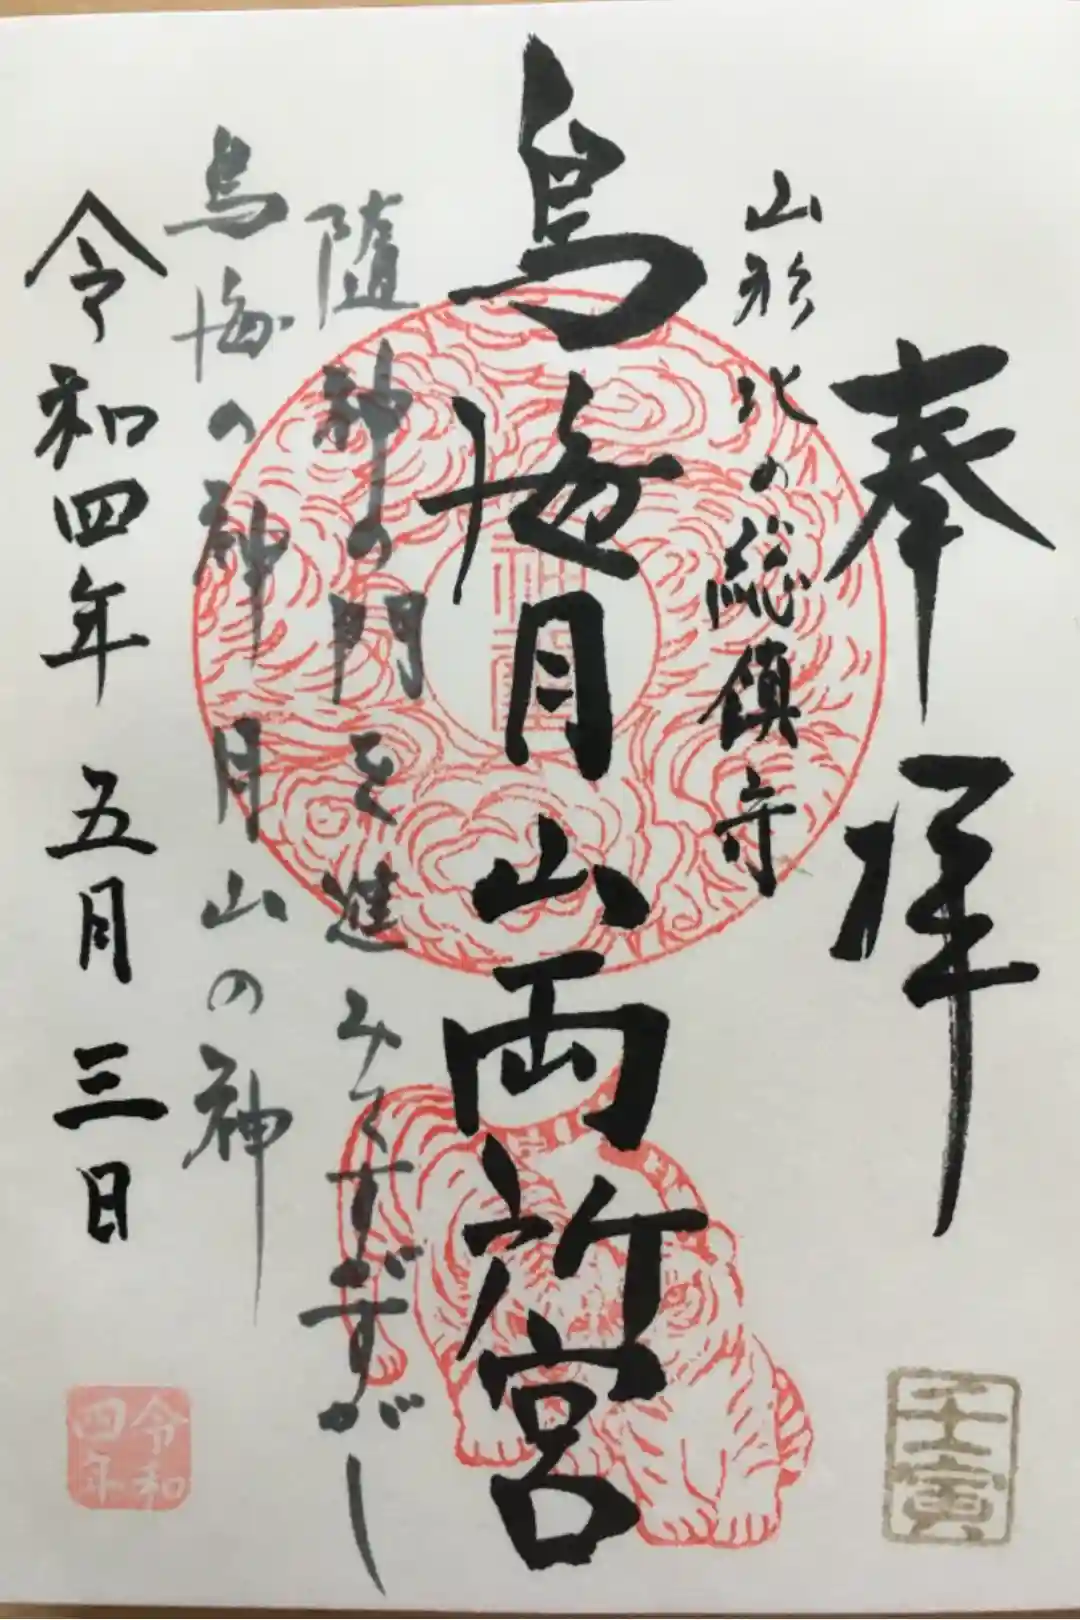 奉拝
山形北の総鎮守
鳥海月山両所宮
随神の門を進みてすがすがし
鳥海の神月山の神
令和四年 五月三日
壬寅
令和
四年